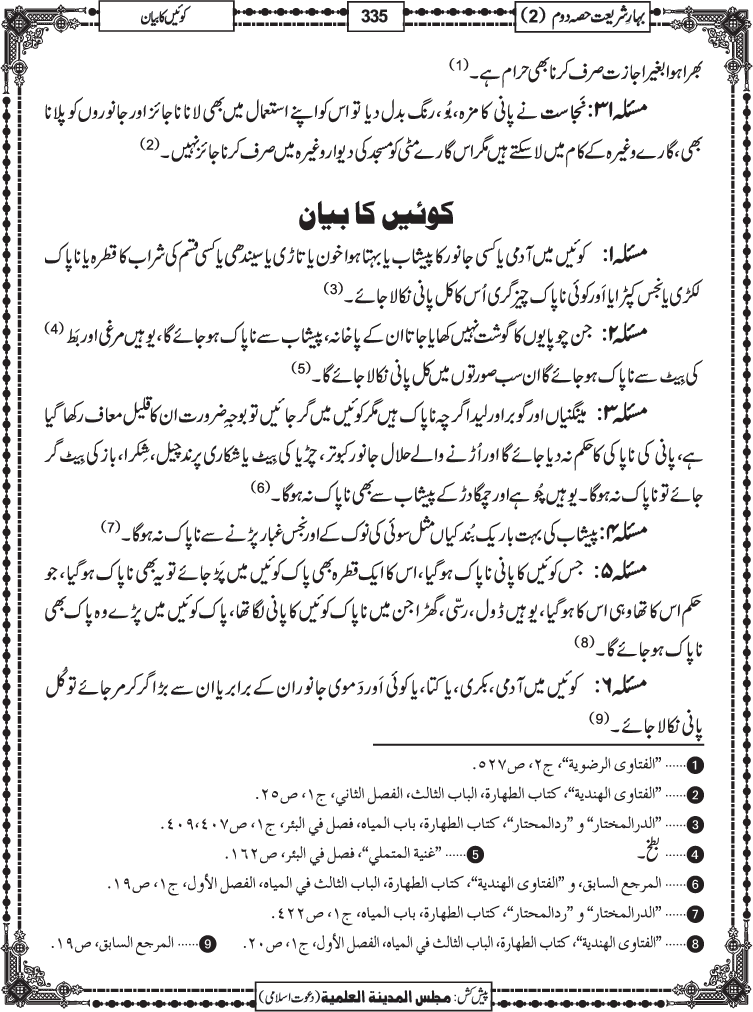 بہارِ شریعت حصہ دوم (2)
335
کوئیں کا بیان
بھرا ہوا بغیر اجازت صرف کرنا بھی حرام ہے۔ (1)
مسئلہ ۳۱: نَجاست نے پانی کا مزہ، بُو، رنگ بدل دیا تو اس کو اپنے استعمال میں بھی لانا ناجائز اور جانوروں کو پلانا
بھی، گارے وغیرہ کے کام میں لاسکتے ہیں مگر اس گارے مٹی کو مسجد کی دیوار وغیرہ میں صرف کرنا جائز نہیں۔ (2)
کوئیں کا بیان
مسئلہ ۱: کوئیں میں آدمی یا کسی جانور کا پیشاب یا بہتا ہوا خون یا تاڑی یا سیندھی یا کسی قسم کی شراب کا قطرہ یا ناپاک
لکڑی یا نجس کپڑا یا اَور کوئی ناپاک چیز گری اُس کا کل پانی نکالا جائے۔ (3)
مسئلہ ۲: جن چوپایوں کا گوشت نہیں کھایا جاتا ان کے پاخانہ، پیشاب سے ناپاک ہو جائے گا، یوہیں مرغی اور بَط (4)
کی بِیٹ سے ناپاک ہو جائے گا ان سب صورتوں میں کل پانی نکالا جائے گا۔ (5)
مسئلہ ۳: مینگنیاں اور گوبر اور لید اگرچہ ناپاک ہیں مگر کوئیں میں گر جائیں تو بوجہِ ضرورت ان کا قلیل معاف رکھا گیا
ہے، پانی کی ناپاکی کا حکم نہ دیا جائے گا اور اُڑنے والے حلال جانور کبوتر، چڑیا کی بِیٹ یا شکاری پرند چیل، شِکرا، باز کی بِیٹ گر
جائے تو ناپاک نہ ہوگا۔ یوہیں چُوہے اور چمگادڑ کے پیشاب سے بھی ناپاک نہ ہوگا۔ (6)
مسئلہ ۴: پیشاب کی بہت باریک بُندکیاں مثل سوئی کی نوک کے اور نجس غبار پڑنے سے ناپاک نہ ہوگا۔ (7)
مسئلہ ۵: جس کوئیں کا پانی ناپاک ہوگیا، اس کا ایک قطرہ بھی پاک کوئیں میں پڑ جائے تو یہ بھی ناپاک ہوگیا، جو
حکم اس کا تھا وہی اس کا ہوگیا، یوہیں ڈول، رسّی، گھڑا جن میں ناپاک کوئیں کا پانی لگا تھا، پاک کوئیں میں پڑے وہ پاک بھی
ناپاک ہو جائے گا۔ (8)
مسئلہ ۶: کوئیں میں آدمی، بکری، یا کتا، یا کوئی اَور دَموی جانور ان کے برابر یا ان سے بڑا گر کر مر جائے تو کُل
پانی نکالا جائے۔ (9)
1 ...... ”الفتاوی الرضویة“، ج۲، ص۵۲۷.
2 ...... ”الفتاوی الھندیة“، کتاب الطھارة، الباب الثالث، الفصل الثاني، ج۱، ص۲۵.
3 ...... ”الدرالمختار“ و ”ردالمحتار“، کتاب الطھارة، باب المیاہ، فصل في البئر، ج۱، ص۴۰۷،۴۰۹.
4 ...... بطخ۔ 5 ...... ”غنیة المتملي“، فصل في البئر، ص۱۶۲.
6 ...... المرجع السابق، و ”الفتاوی الھندیة“، کتاب الطھارة، الباب الثالث في المیاہ، الفصل الأول، ج۱، ص۱۹.
7 ...... ”الدرالمختار“ و ”ردالمحتار“، کتاب الطھارة، باب المیاہ، ج۱، ص۴۲۲.
8 ...... ”الفتاوی الھندیة“، کتاب الطھارة، الباب الثالث في المیاہ، الفصل الأول، ج۱، ص۲۰. 9 ...... المرجع السابق، ص۱۹.
پیش کش: مجلس المدینة العلمیة (دعوت اسلامی)